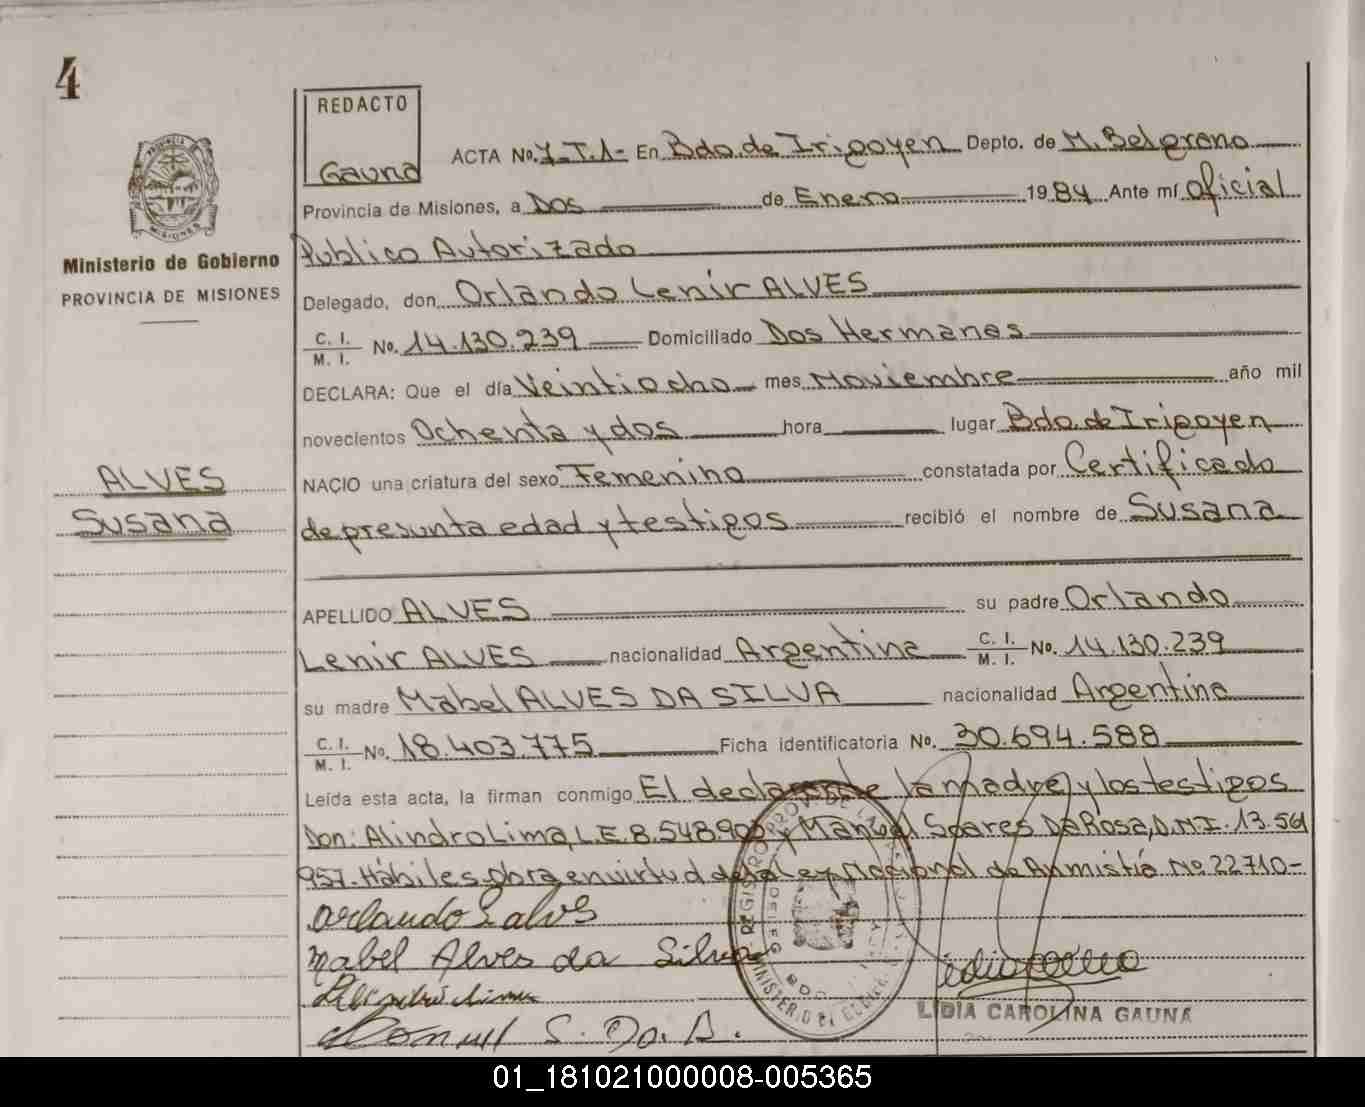 4
REDACTO
Gauna
PROVINCIA DE
MISIONES
Ministerio de Gobierno
PROVINCIA DE MISIONES
ALVES
Susana
ACTA No. 7-T.1- En Bdo. de Irigoyen Depto. de M. Belgrano
Provincia de Misiones, a Dos de Enero 1984 Ante mí oficial
Publico Autorizado
Delegado, don Orlando Lenir ALVES
C. I.
M. I. No. 14.130.239 Domiciliado Dos Hermanas
DECLARA: Que el día Veintiocho mes Noviembre año mil
novecientos Ochenta y dos hora lugar Bdo. de Irigoyen
NACIO una criatura del sexo Femenino constatada por Certificado
de presunta edad y testigos recibió el nombre de Susana
APELLIDO ALVES su padre Orlando
Lenir ALVES nacionalidad Argentina C. I. M. I. No. 14.130.239
su madre Mabel ALVES DA SILVA nacionalidad Argentina
C. I.
M. I. No. 18.403.775 Ficha identificatoria No. 30.694.588
Leída esta acta, la firman conmigo El declarante la madre y los testigos
Don: Alindro Lima, L.E. 8.548.903 y Manuel Soares Da Rosa, D.N.I. 13.561
957. Hábiles obra en virtud de la Ley Nacional de Anmistía No 22710-
Orlando L alves
Mabel Alves da Silva
S. Da. R.
LIDIA CAROLINA GAUNA
01_181021000008-005365